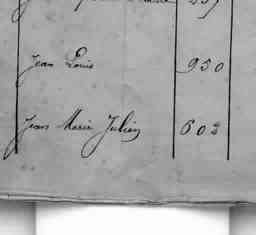 Jean Louis 950
Jean Marie Julien 602